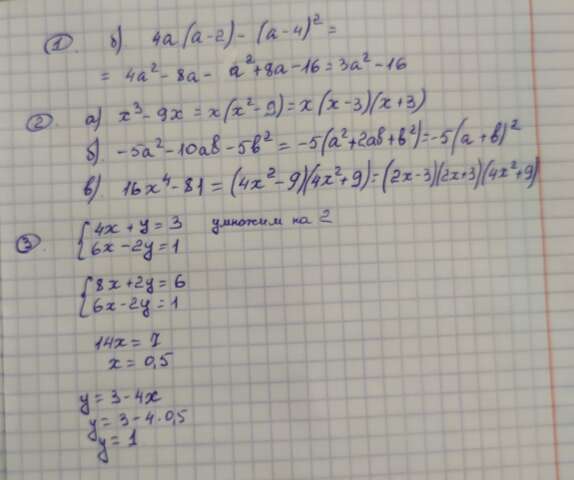 ① б) 4a(a-2)-(a-4)² =
= 4a²-8a- a²+8a-16=3a²-16
② a) x³-9x = x(x²-9)=x(x-3)(x+3)
б) -5a²-10ab-5b² = -5(a²+2ab+b²)=-5(a+b)²
в) 16x⁴-81 = (4x²-9)(4x²+9)=(2x-3)(2x+3)(4x²+9)
③ {4x+y=3 умножим на 2
{6x-2y=1
{8x+2y=6
{6x-2y=1
14x=7
x=0,5
y=3-4x
y=3-4·0,5
y=1